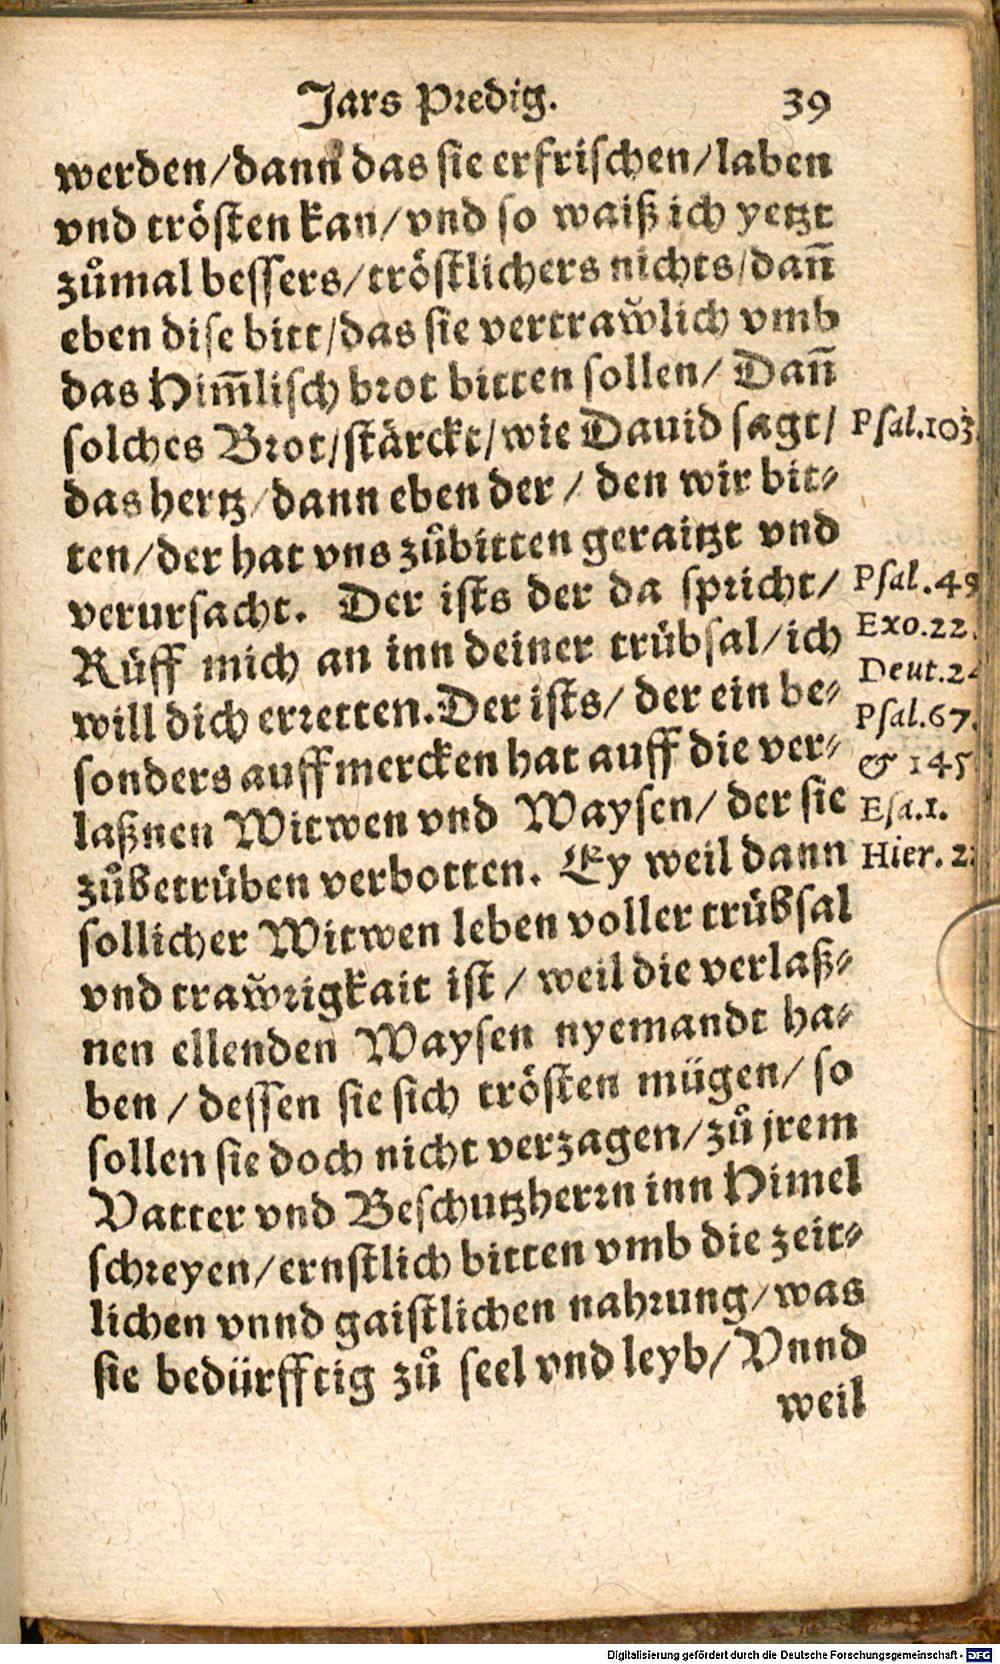 Jars Predig. 39
werden/dann das sie erfrischen/laben
vnd trösten kan/vnd so waiß ich yetzt
zůmal bessers/tröstlichers nichts/dañ
eben dise bitt/das sie vertraẘlich vmb
das Him̃lisch brot bitten sollen/ Dañ
solches Brot/stärckt/wie Dauid sagt/ Psal.103.
das hertz/dann eben der / den wir bit⸗
ten/der hat vns zůbitten geraitzt vnd
verursacht. Der ists der da spricht/ Psal.49
Rüff mich an inn deiner trübsal/ich Exo.22.
will dich erretten.Der ists/ der ein be⸗ Deut.24
sonders auffmercken hat auff die ver⸗ Psal.67.
laßnen Witwen vnd Waysen/ der sie & 145
zůbetrüben verbotten. Ey weil dann Esa.1.
sollicher Witwen leben voller trübsal Hier. 22
vnd traẘrigkait ist / weil die verlaß⸗
nen ellenden Waysen nyemandt ha⸗
ben / dessen sie sich trösten mügen/ so
sollen sie doch nicht verzagen/zů jrem
Vatter vnd Beschutzherrn inn Himel
schreyen/ernstlich bitten vmb die zeit⸗
lichen vnnd gaistlichen nahrung/was
sie bedürfftig zů seel vnd leyb/ Vnnd
weil
Digitalisierung gefördert durch die Deutsche Forschungsgemeinschaft - DFG